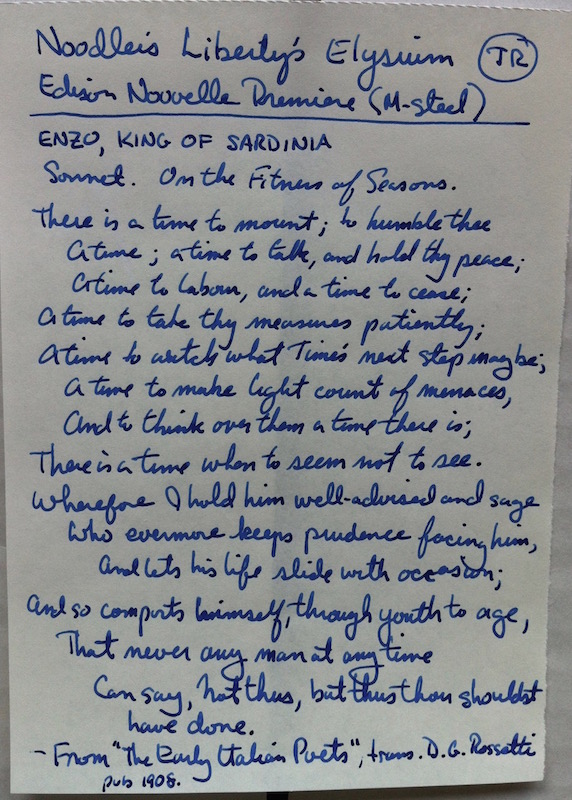 Noodler's Liberty's Elysium TR
Edison Nouvelle Premiere (M-steel)
ENZO, KING OF SARDINIA
Sonnet. On the Fitness of Seasons.
There is a time to mount; to humble thee
A time; a time to talk, and hold thy peace;
A time to labour, and a time to cease;
A time to take thy measures patiently;
A time to watch what Time's next step may be;
A time to make light count of menaces,
And to think over them a time there is;
There is a time when to seem not to see.
Wherefore I hold him well-advised and sage
Who evermore keeps prudence facing him,
And lets his life slide with occasion;
And so comports himself, through youth to age,
That never any man at any time
Can say, Not thus, but thus thou shouldst
have done.
- From "The Early Italian Poets", trans. D.G. Rossetti
pub 1908.